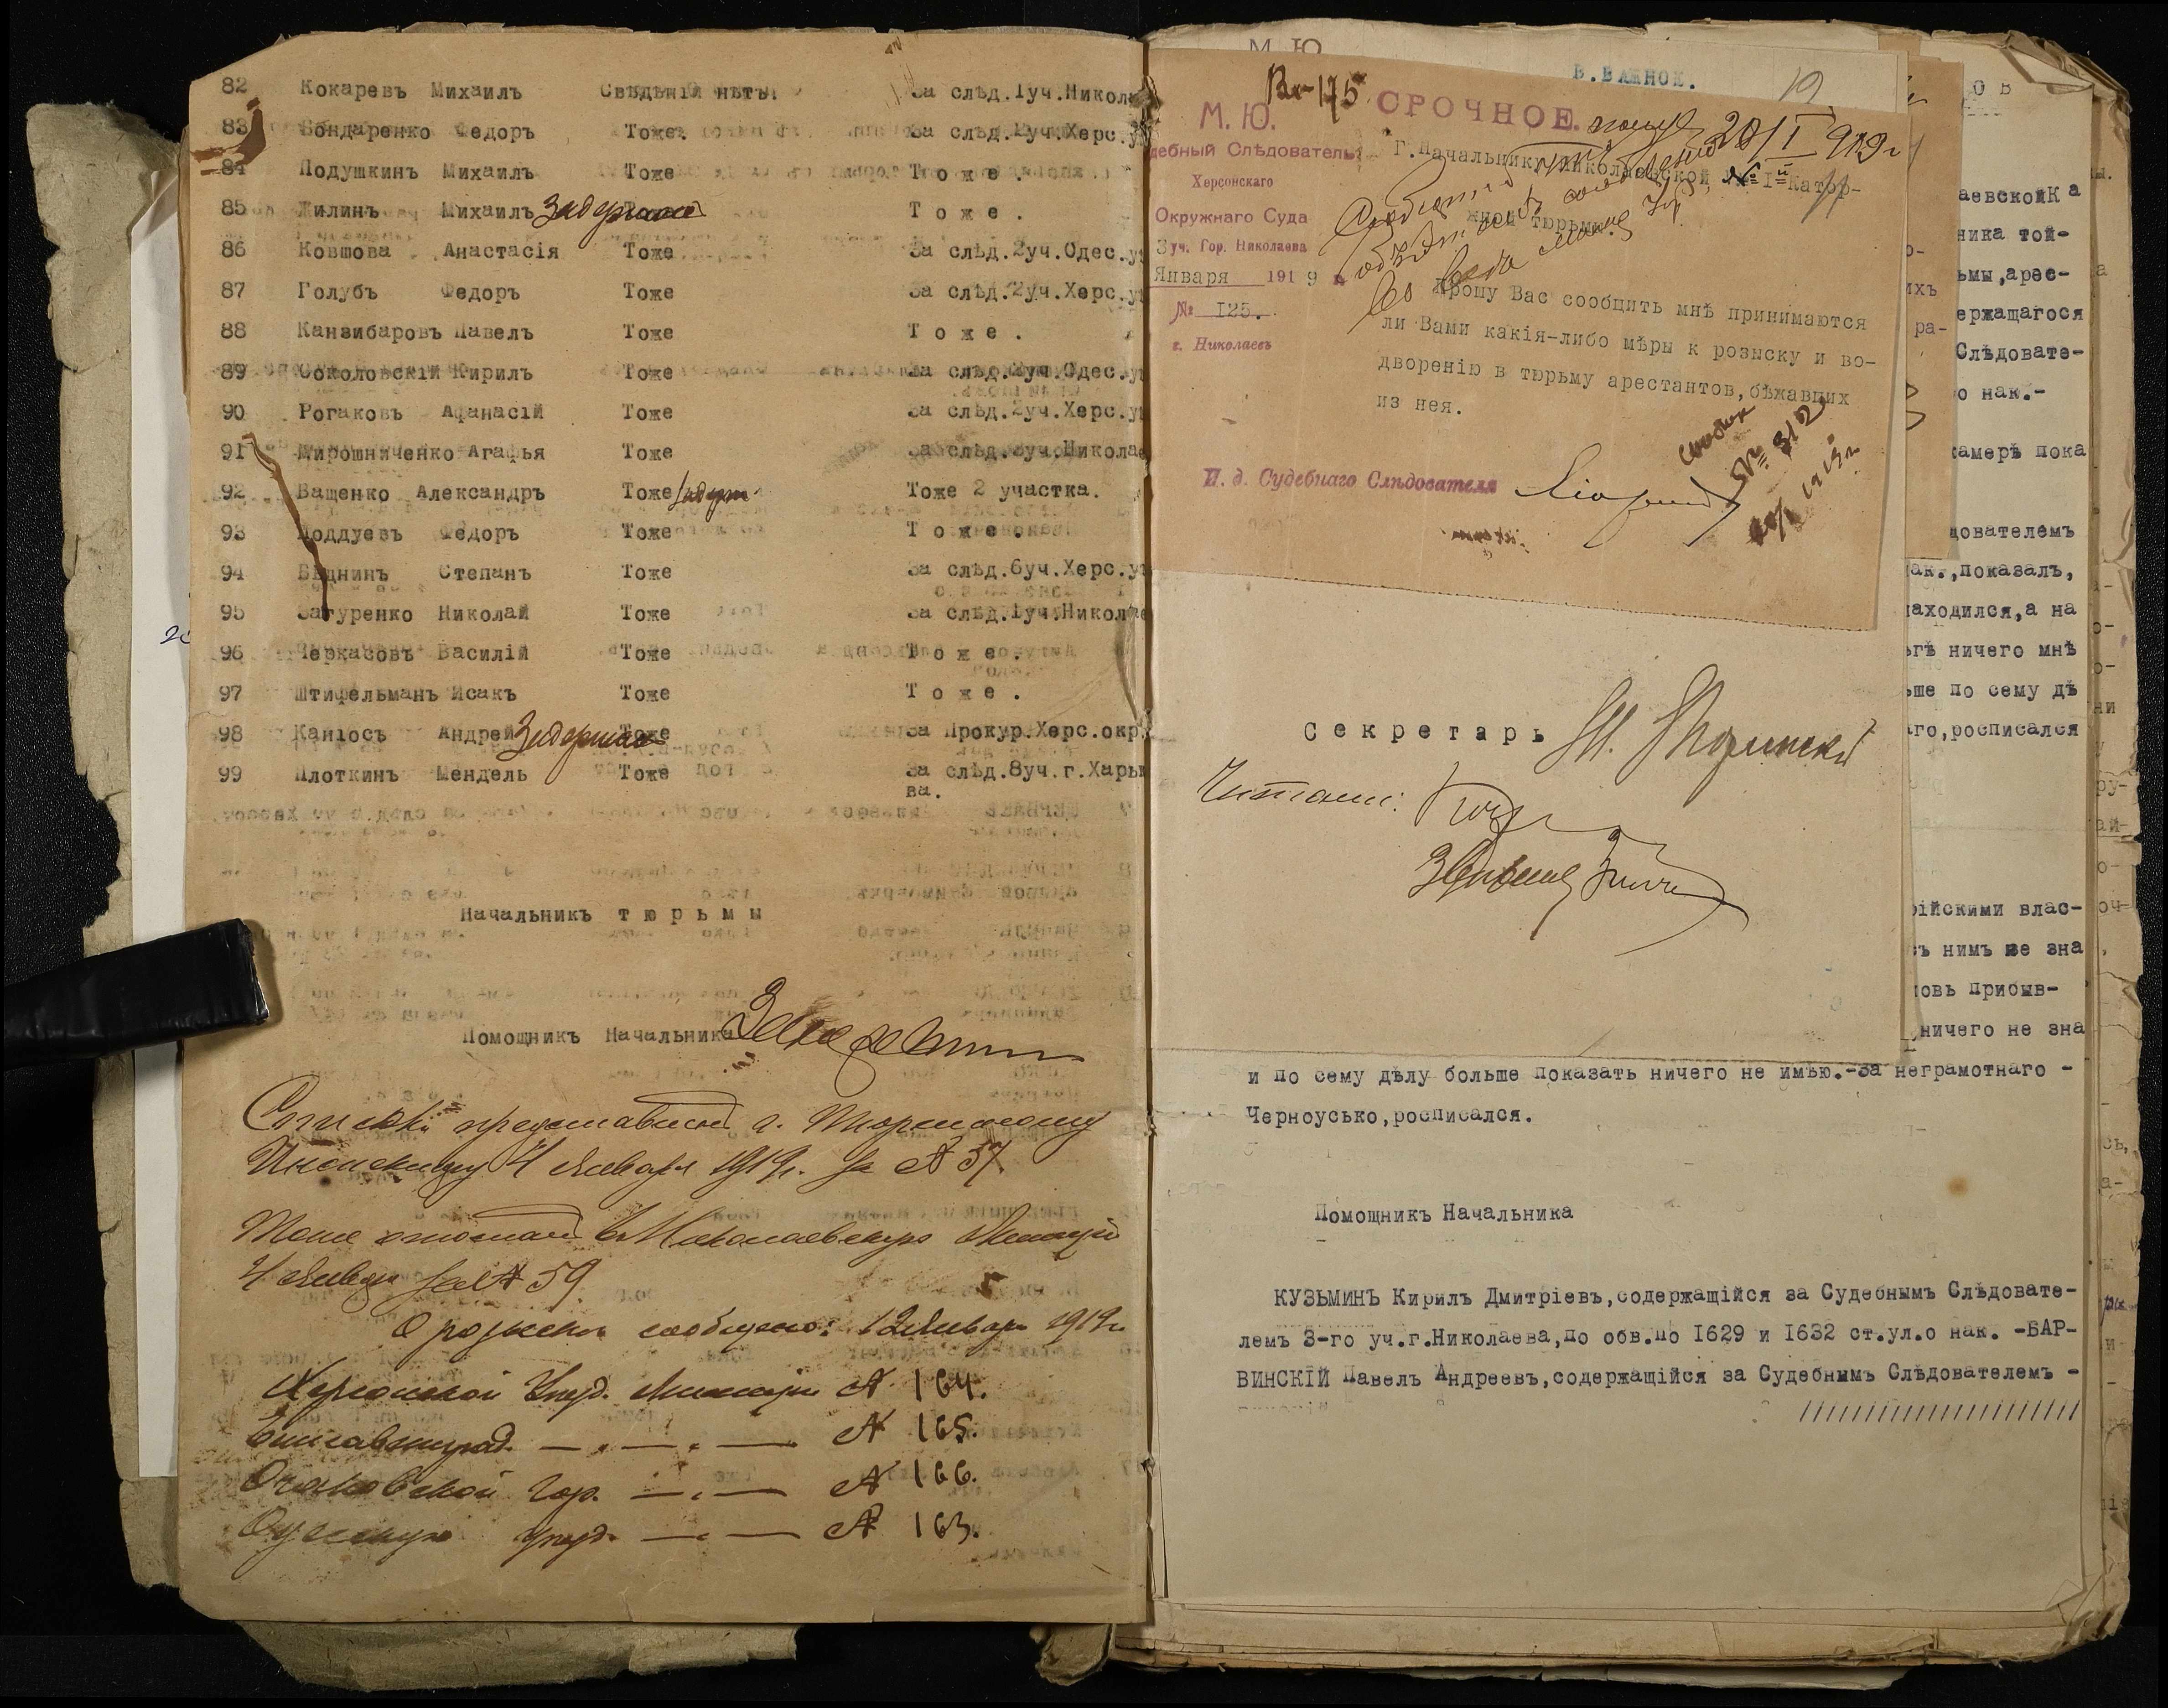 82 Кокаревъ Михаилъ Свѣдѣній нѣтъ. За слѣд.1уч.Никола
83 Бондаренко Федоръ Тоже. За слѣд.2уч.Херс.у
84 Подушкинъ Михаилъ Тоже Т о ж е .
85 Жилинъ Михаилъ Задержанъ Тоже Т о ж е .
86 Ковшова Анастасія Тоже За слѣд.2уч.Одес.у
87 Голубъ Федоръ Тоже За слѣд.2уч.Херс.у
88 Канзибаровъ Павелъ Тоже Т о ж е .
89 Соколовскій Кирилъ Тоже За слѣд.2уч.Одес.у
90 Рогаковъ Афанасій Тоже За слѣд.2уч.Херс.у
91 Мирошниченко Агафья Тоже За слѣд.3уч.Никола
92 Ващенко Александръ Тоже Тоже 2 участка.
93 Поддуевъ Федоръ Тоже Т о ж е .
94 Бѣднинъ Степанъ Тоже За слѣд.6уч.Херс.у
95 Затуренко Николай Тоже За слѣд.1уч.Николае
96 Черкасовъ Василій Тоже Т о ж е .
97 Штифельманъ Исакъ Тоже Т о ж е .
98 Каніосъ Андрей Задержанъ Тоже За Прокур.Херс.окр.
99 Плоткинъ Мендель Тоже За слѣд.8уч.г.Харьк
ва.
Начальникъ т ю р ь м ы
Помощникъ Начальника
Списокъ представленъ г. Тюремному
Инспектору 4 Января 1919г. за № 57.
Тоже отосланъ въ Николаевскую Милицію
4 Января за № 59.
О розыскѣ сообщено: 12 Января 1919г.
Херсонской Уѣзд. Милиціи № 164.
Елисаветград. — „ — „ — № 165.
Очаковской Гор. — „ — № 166.
Одесскую Уѣзд. — „ — № 163.
М Ю
В.ВАЖНОЕ.
Вх-175
М. Ю.
СРОЧНОЕ.
20/I 919 г
дебный Слѣдователь
Херсонскаго
Окружнаго Суда
3 уч. Гор. Николаева
Января 191 9 г.
№ 125.
г. Николаевъ
Г.Начальнику Николаевской №1й Катор-
жной тюрьмы.
Прошу Вас сообщить мнѣ принимаются
ли Вами какія-либо мѣры к розыску и во-
дворенію в тюрьму арестантов,бѣжавших
из нея.
№ 312
20/I 1919 г.
И. д. Судебнаго Слѣдователя
С е к р е т а р ь
Читали:
о в
аевскойКа
ника той-
ьмы,арес-
ержащагося
Слѣдовате-
о нак.-
камерѣ пока
дователемъ
ак.,показалъ,
аходился,а на
ьгѣ ничего мнѣ
ьше по сему дѣ
го,росписался
ійскими влас-
съ нимъ же зна
овъ прибыв-
ничего не зна
и по сему дѣлу больше показать ничего не имѣю.-За неграмотнаго -
Черноусько,росписался.
Помощникъ Начальника
КУЗЬМИНЪ Кирилъ Дмитріевъ,содержащійся за Судебнымъ Слѣдовате-
лемъ 3-го уч.г.Николаева,по обв.по 1629 и 1632 ст.ул.о нак. -БАР-
ВИНСКІЙ Павелъ Андреевъ,содержащійся за Судебнымъ Слѣдователемъ -